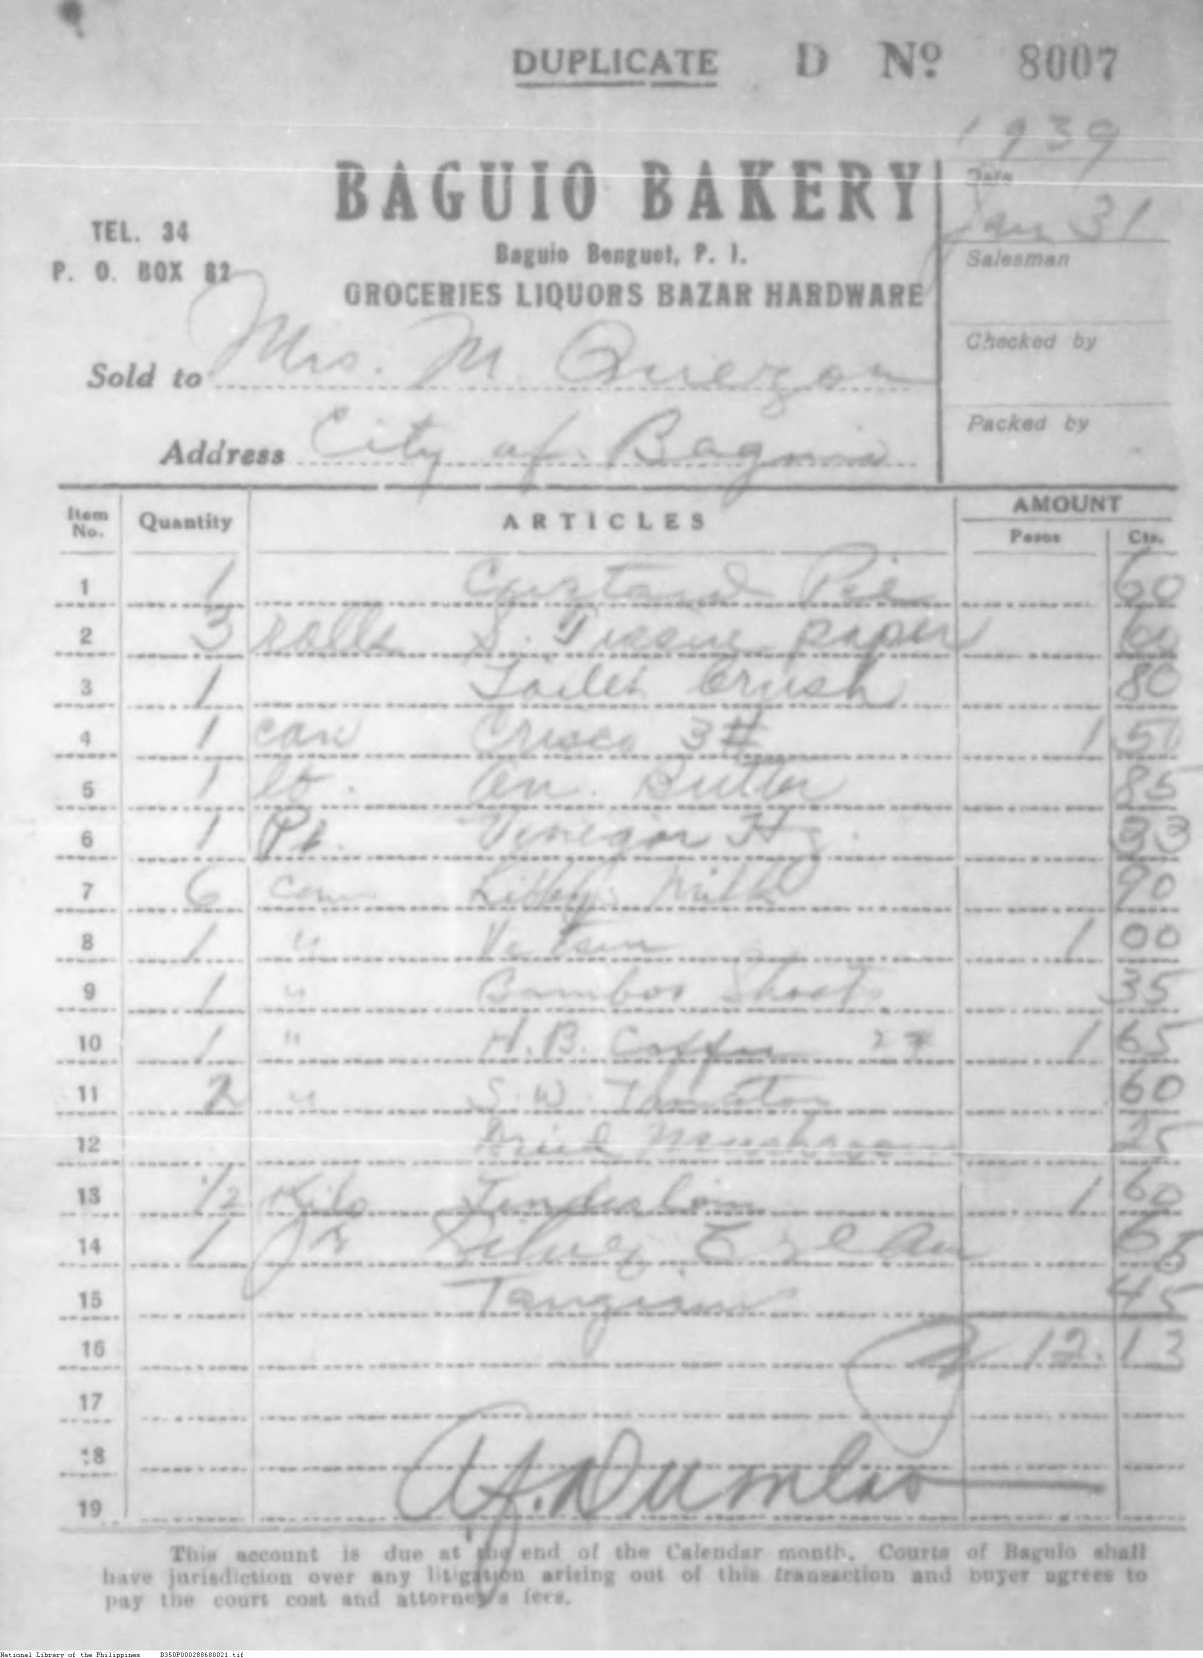 DUPLICATE D Nº 8007
1939
Date
BAGUIO BAKERY
TEL. 34
Jan 31
P. O. BOX 82
Baguio Benguet, P. I.
Salesman
GROCERIES LIQUORS BAZAR HARDWARE
Checked by
Sold to Mrs. M. Quezon
Packed by
Address City of Baguio
Item No. Quantity ARTICLES AMOUNT
Pesos Cts.
1 1 Custard Pie 60
2 3 rolls S. Tissue paper 60
3 1 Toilet brush 80
4 1 can Crisco 3# 1 50
5 1 lb. An. Butter 85
6 1 Pt. Vinegar Hz. 33
7 6 can Libby's Milk 90
8 1 " Vetsin 1 00
9 1 " Bamboo Shoots 35
10 1 " H. B. Coffee 2# 1 65
11 2 " S. W. Tomatoe 60
12 Dried Mushroom 25
13 1/2 Kilo Tenderloin 1 60
14 1 Jr 65
15 45
16 12.13
17
18 A. J. Dumlao
19
This account is due at the end of the Calendar month. Courts of Baguio shall
have jurisdiction over any litigation arising out of this transaction and buyer agrees to
pay the court cost and attorney's fees.
National Library of the Philippines B350P000288680021.tif